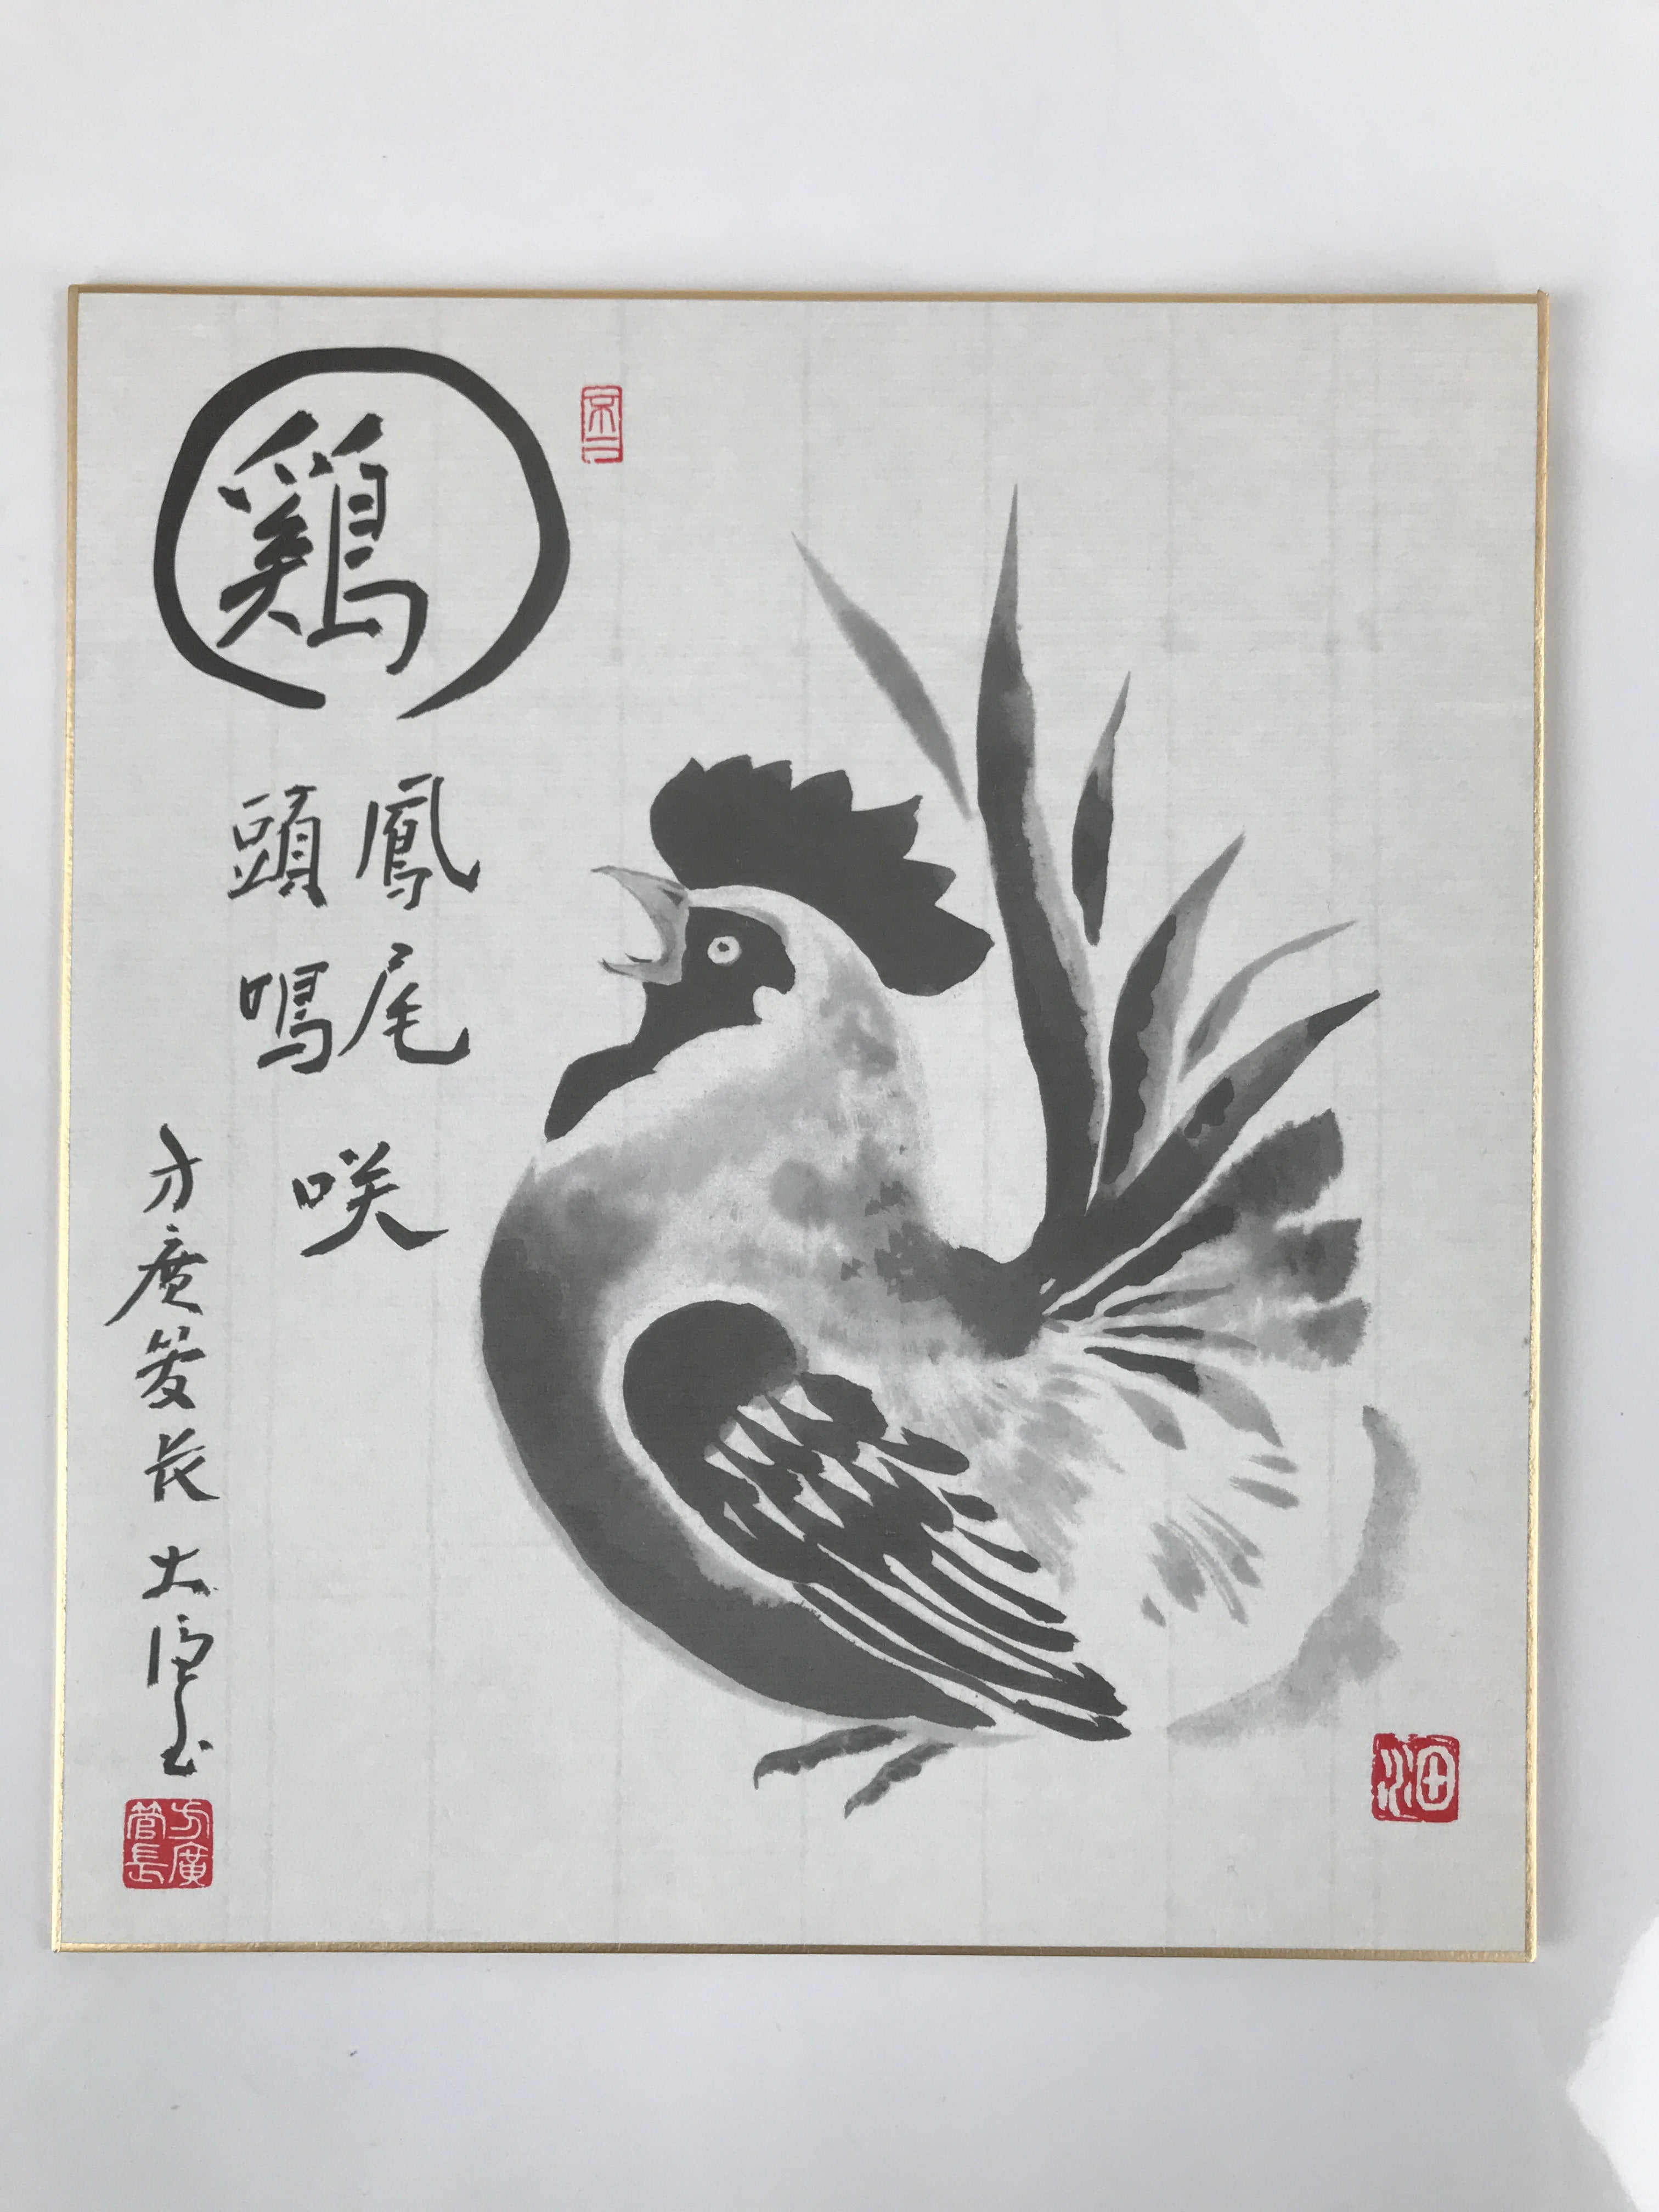 鷄
鳳尾
頭鳴
咲
方廣管長
方廣管長